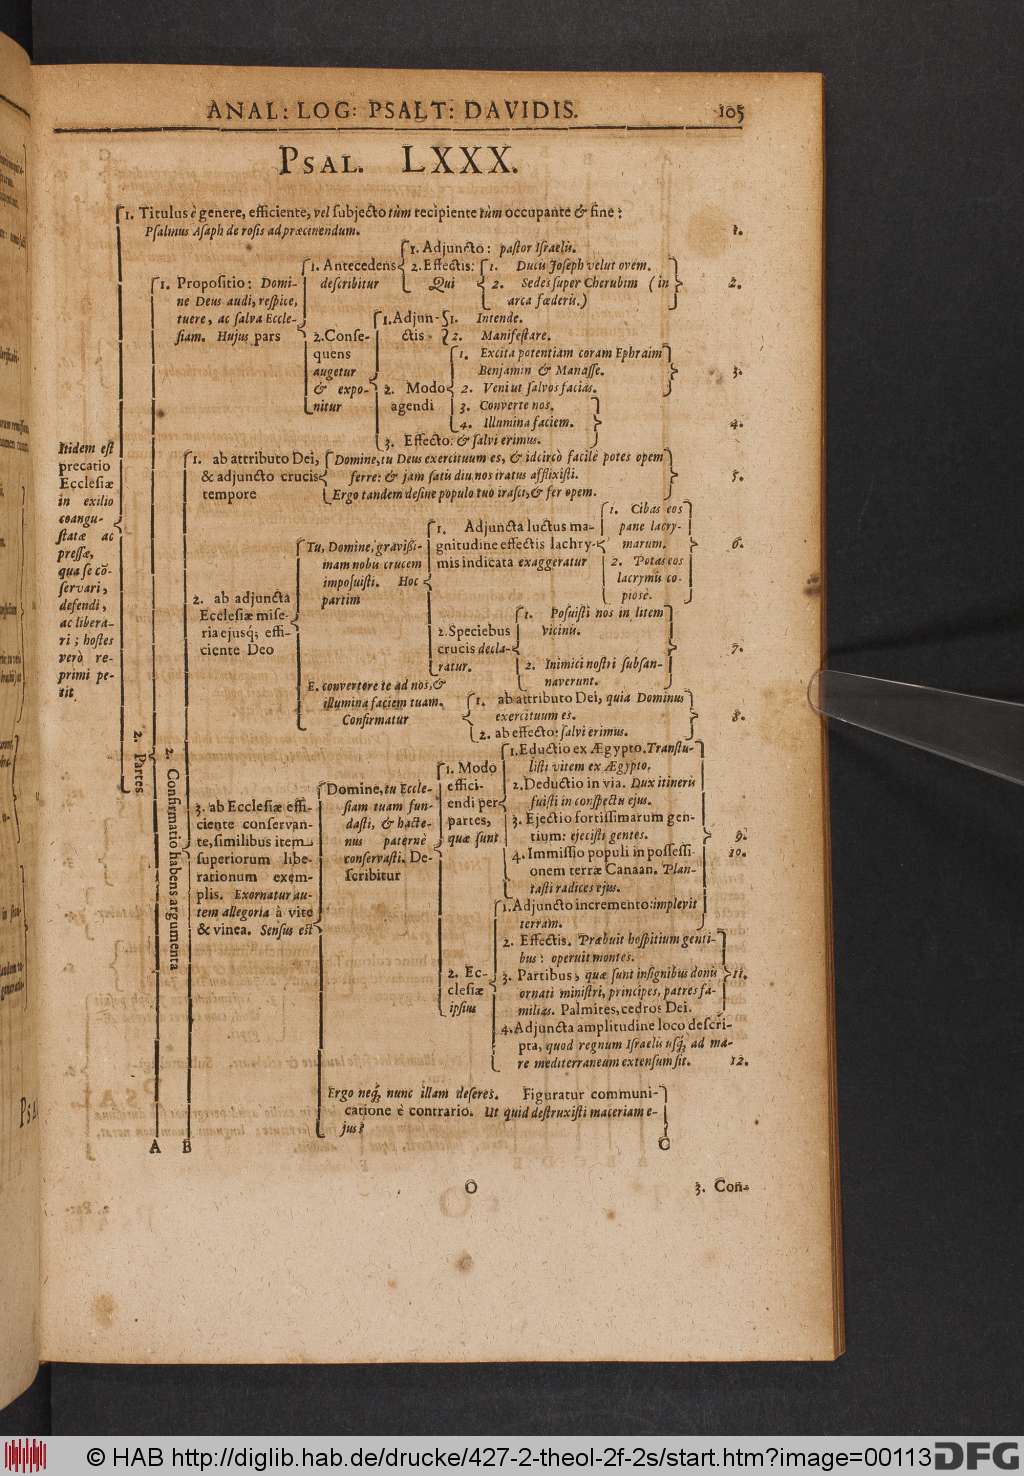 ANAL: LOG: PSALT: DAVIDIS. 105
PSAL. LXXX.
1. Titulus è genere, efficiente, vel subjecto tùm recipiente tùm occupante & fine:
Psalmus Asaph de rosis ad præcinendum. 1.
Itidem est
precatio
Ecclesiæ
in exilio
coangu-
statæ ac
pressæ,
qua se cō-
servari,
defendi,
ac libera-
ri; hostes
verò re-
primi pe-
tit
2. Partes
1. Propositio: Domi-
ne Deus audi, respice,
tuere, ac salva Eccle-
siam. Hujus pars
1. Antecedens
describitur
1. Adjuncto: pastor Israelis.
2. Effectis:
Qui
1. Ducis Joseph velut ovem.
2. Sedes super Cherubim (in
arca fœderis.)
2.
2. Conse-
quens
augetur
& expo-
nitur
1. Adjun-
ctis
1. Intende.
2. Manifestare.
2. Modo
agendi
1. Excita potentiam coram Ephraim
Benjamin & Manasse.
2. Veni ut salvos facias.
3.
3. Converte nos.
4. Illumina faciem.
4.
3. Effecto: & salvi erimus.
2. Confirmatio habens argumenta
1. ab attributo Dei,
& adjuncto crucis
tempore
Domine, tu Deus exercituum es, & idcircò facilè potes opem
ferre: & jam satis diu nos iratus afflixisti.
Ergo tandem desine populo tuo irasci, & fer opem.
5.
2. ab adjuncta
Ecclesiæ mise-
ria ejusq; effi-
ciente Deo
Tu, Domine, gravißi-
mam nobis crucem
imposuisti. Hoc
partim
1. Adjuncta luctus ma-
gnitudine effectis lachry-
mis indicata exaggeratur
1. Cibas eos
pane lacry-
marum.
2. Potas eos
lacrymis co-
piosè.
6.
2. Speciebus
crucis decla-
ratur.
1. Posuisti nos in litem
vicinis.
2. Inimici nostri subsan-
naverunt.
7.
E. convertere te ad nos, &
illumina faciem tuam.
Confirmatur
1. ab attributo Dei, quia Dominus
exercituum es.
2. ab effecto: salvi erimus.
8.
3. ab Ecclesiæ effi-
ciente conservan-
te, similibus item
superiorum libe-
rationum exem-
plis. Exornatur au-
tem allegoria à vite
& vinea. Sensus est
Domine, tu Eccle-
siam tuam fun-
dasti, & hacte-
nus paternè
conservasti. De-
scribitur
1. Modo
effici-
endi per
partes,
quæ sunt
1. Eductio ex Ægypto. Transtu-
listi vitem ex Ægypto.
2. Deductio in via. Dux itineris
fuisti in conspectu ejus.
3. Ejectio fortissimarum gen-
tium: ejecisti gentes.
9.
4. Immissio populi in possessi-
onem terræ Canaan. Plan-
tasti radices ejus.
10.
2. Ec-
clesiæ
ipsius
1. Adjuncto incremento: implevit
terram.
2. Effectis. Præbuit hospitium genti-
bus: operuit montes.
3. Partibus, quæ sunt insignibus donis
ornati ministri, principes, patres fa-
milias. Palmites, cedros Dei.
11.
4. Adjuncta amplitudine loco descri-
pta, quod regnum Israelis usq; ad ma-
re mediterraneum extensum sit. 12.
Ergo neq; nunc illam deseres. Figuratur communi-
catione è contrario. Ut quid destruxisti maceriam e-
jus?
A B C
O 3. Con-
© HAB http://diglib.hab.de/drucke/427-2-theol-2f-2s/start.htm?image=00113
DFG